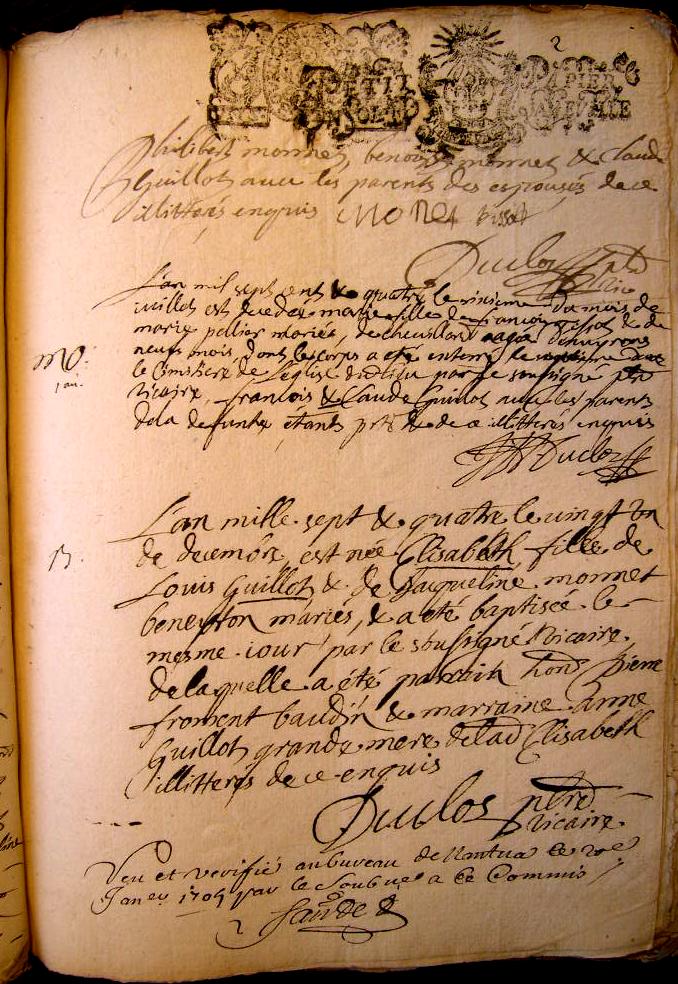 2
PETIT PAPIER
Philibert monnet, benoist monnet & Claude
Guillot avec les parents des espousés de ce
illitterés enquis MONET
Duclos ptre
L'an mil sept cents & quatre le sixieme du mois de
iuillet est decedée marie fille de francois & de
marie pellier mariés, de chevillard agée d'environs
neuf mois, dont le corps a eté enterré le avec
le Cimitiere de l'église dudit lieu par je soussigné ptre
vicaire, francois & Claude Guillot avec les parents
de la defunte étants prts & de ce illitterés enquis
Duclos
mo.
B.
L'an mille sept & quatre le vingt un
de decembre est née Elisabeth fille de
Louis Guillot & de Jacqueline monnet
beneyton mariés, & a eté baptisée le
mesme iour par le soussigné Vicaire,
de laquelle a été parrain hon. Pierre
froment baudin & marraine anne
Guillot grande mere de lad Elisabeth
illitterés de ce enquis
Duclos ptre
Vicaire
Veu et verifié au bureau de Nantua le
Janer 1705 par le Soubné a ce Commis